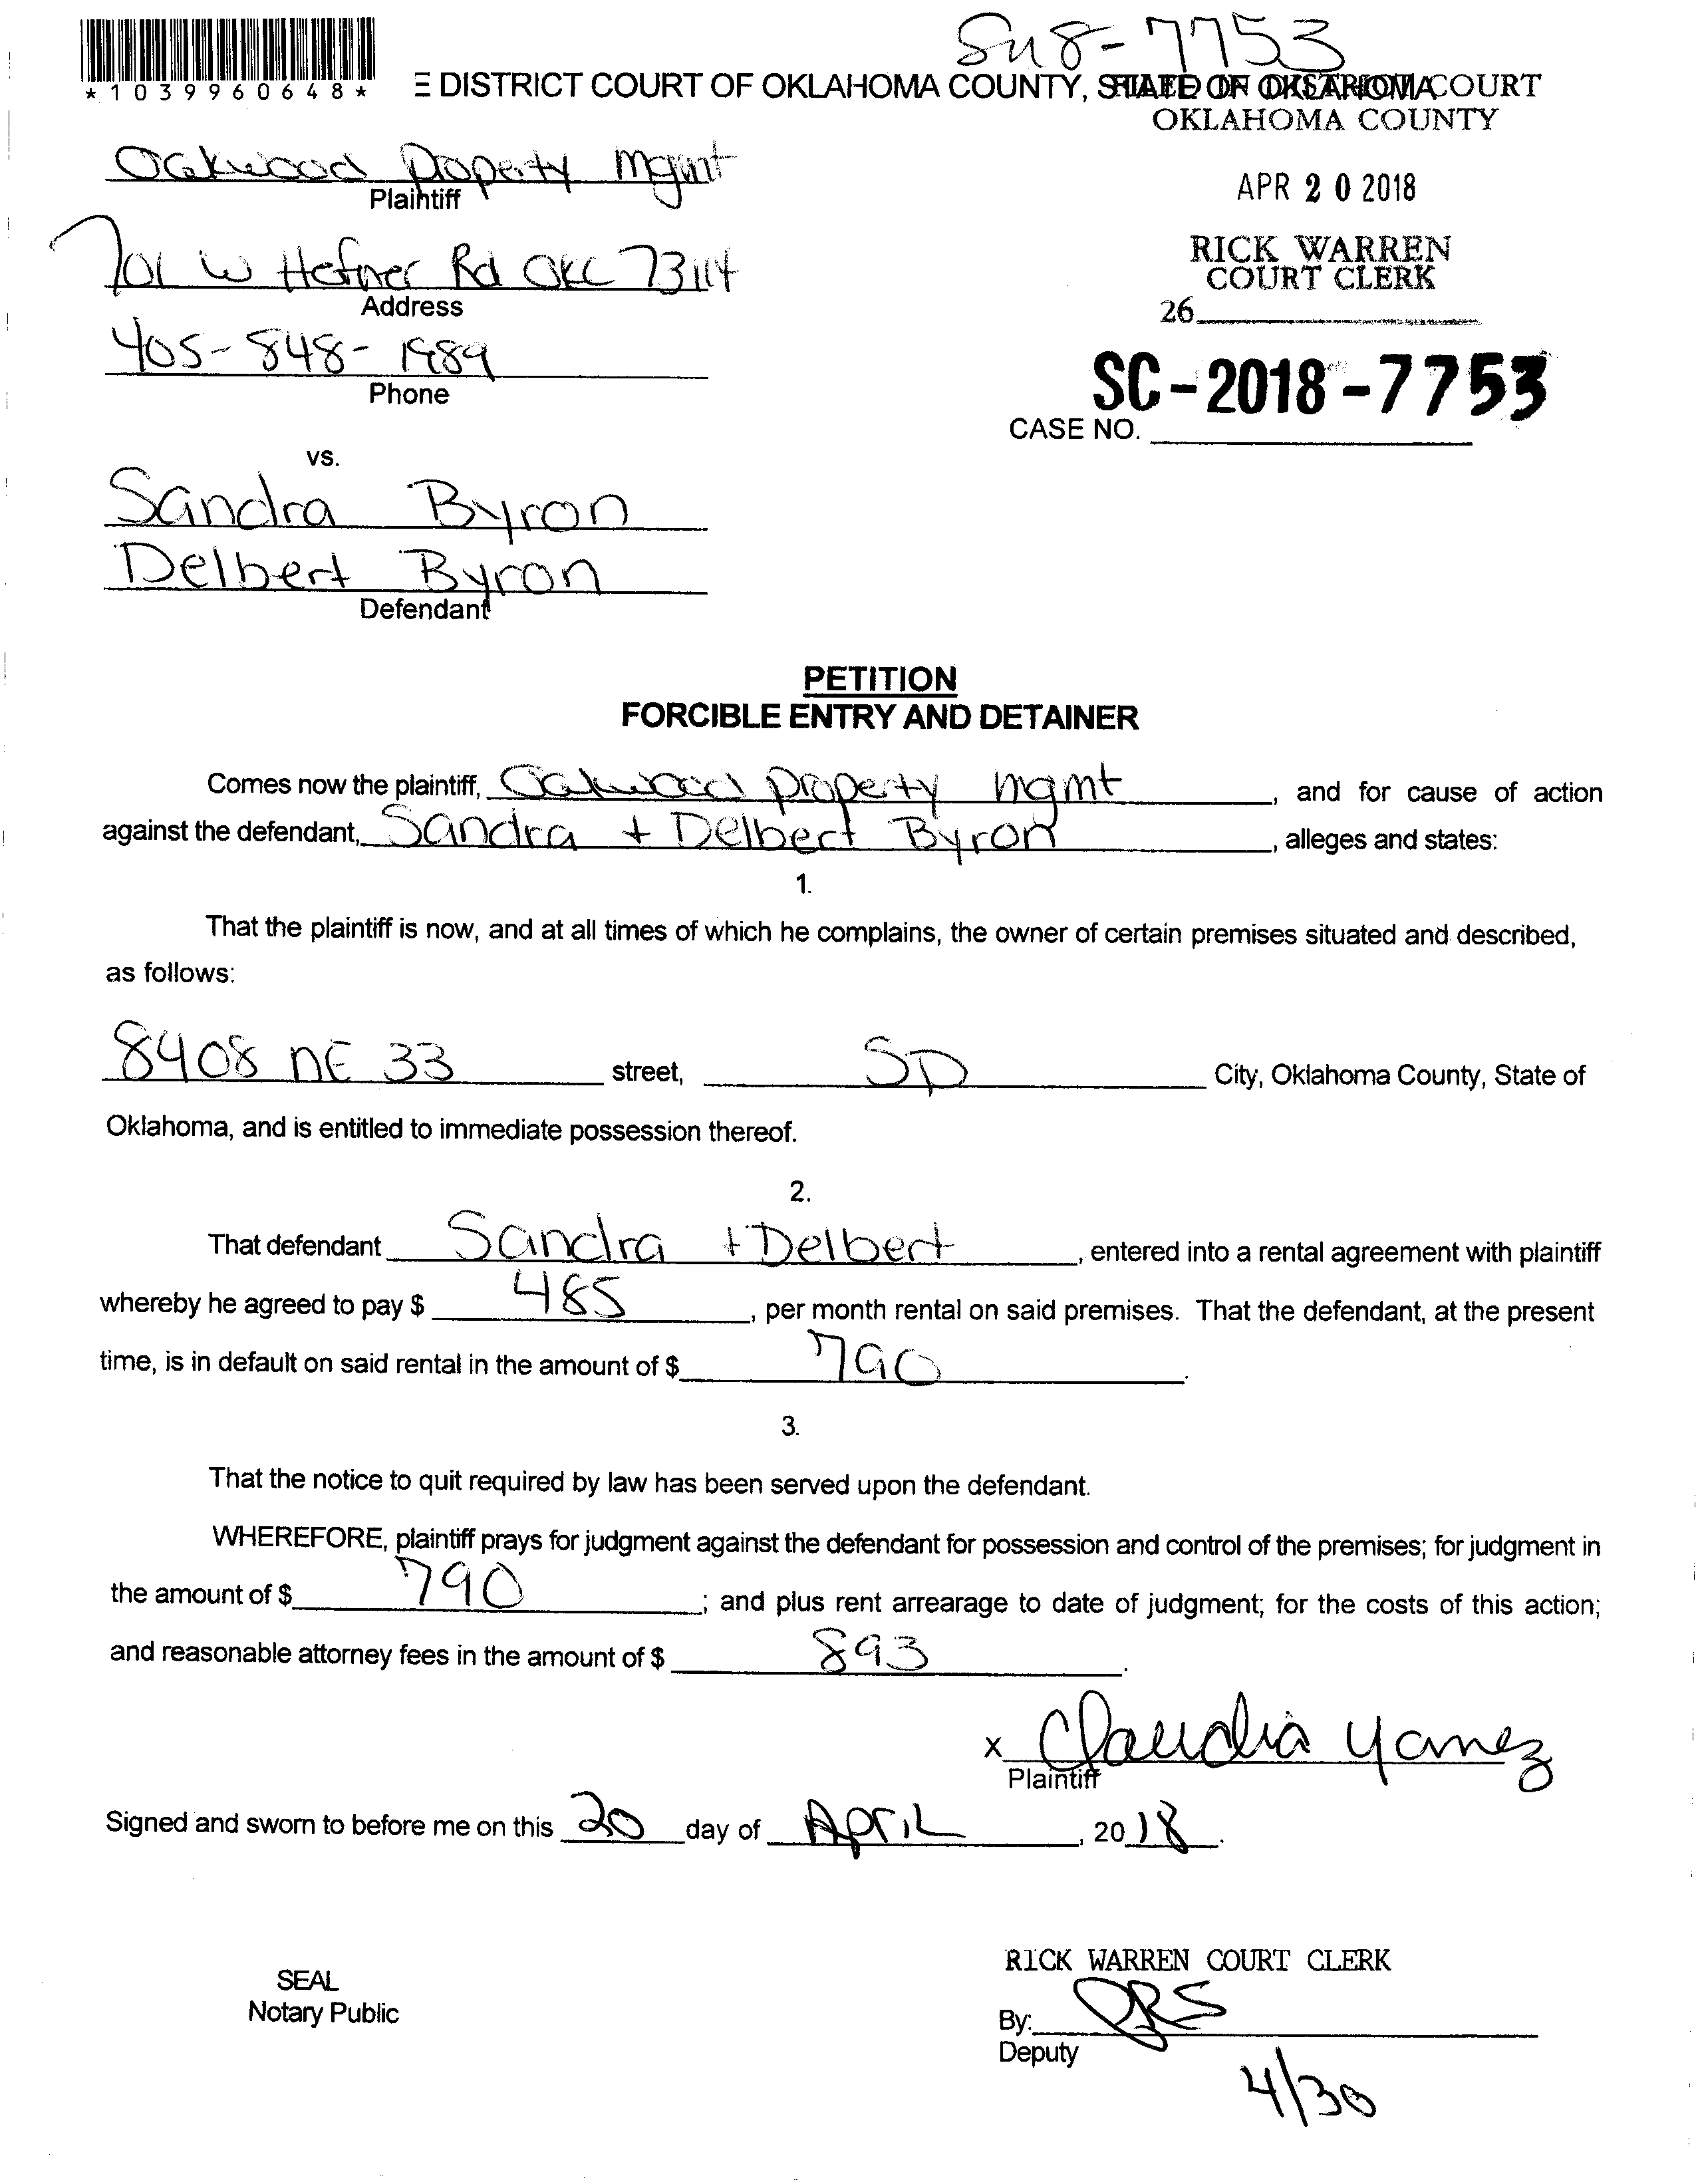 Su8-7753
*1039960648*
E DISTRICT COURT OF OKLAHOMA COUNTY, STATE OF OKLAHOMA
FILED IN DISTRICT COURT
OKLAHOMA COUNTY
Oakwood Property Mgmt
Plaintiff
APR 20 2018
701 W Hefner Rd OKC 73114
Address
RICK WARREN
COURT CLERK
26
405-848-1989
Phone
SC-2018-7753
CASE NO.
vs.
Sandra Byron
Delbert Byron
Defendant
PETITION
FORCIBLE ENTRY AND DETAINER
Comes now the plaintiff, Oakwood Property mgmt, and for cause of action
against the defendant, Sandra + Delbert Byron, alleges and states:
1.
That the plaintiff is now, and at all times of which he complains, the owner of certain premises situated and described,
as follows:
8408 NE 33 street, SD City, Oklahoma County, State of
Oklahoma, and is entitled to immediate possession thereof.
2.
That defendant Sandra + Delbert, entered into a rental agreement with plaintiff
whereby he agreed to pay $ 485, per month rental on said premises. That the defendant, at the present
time, is in default on said rental in the amount of $ 790.
3.
That the notice to quit required by law has been served upon the defendant.
WHEREFORE, plaintiff prays for judgment against the defendant for possession and control of the premises; for judgment in
the amount of $ 790; and plus rent arrearage to date of judgment; for the costs of this action;
and reasonable attorney fees in the amount of $ 893.
x Claudia Yanez
Plaintiff
Signed and sworn to before me on this 20 day of April, 2018.
RICK WARREN COURT CLERK
SEAL
Notary Public
By: DRS
Deputy
4/30